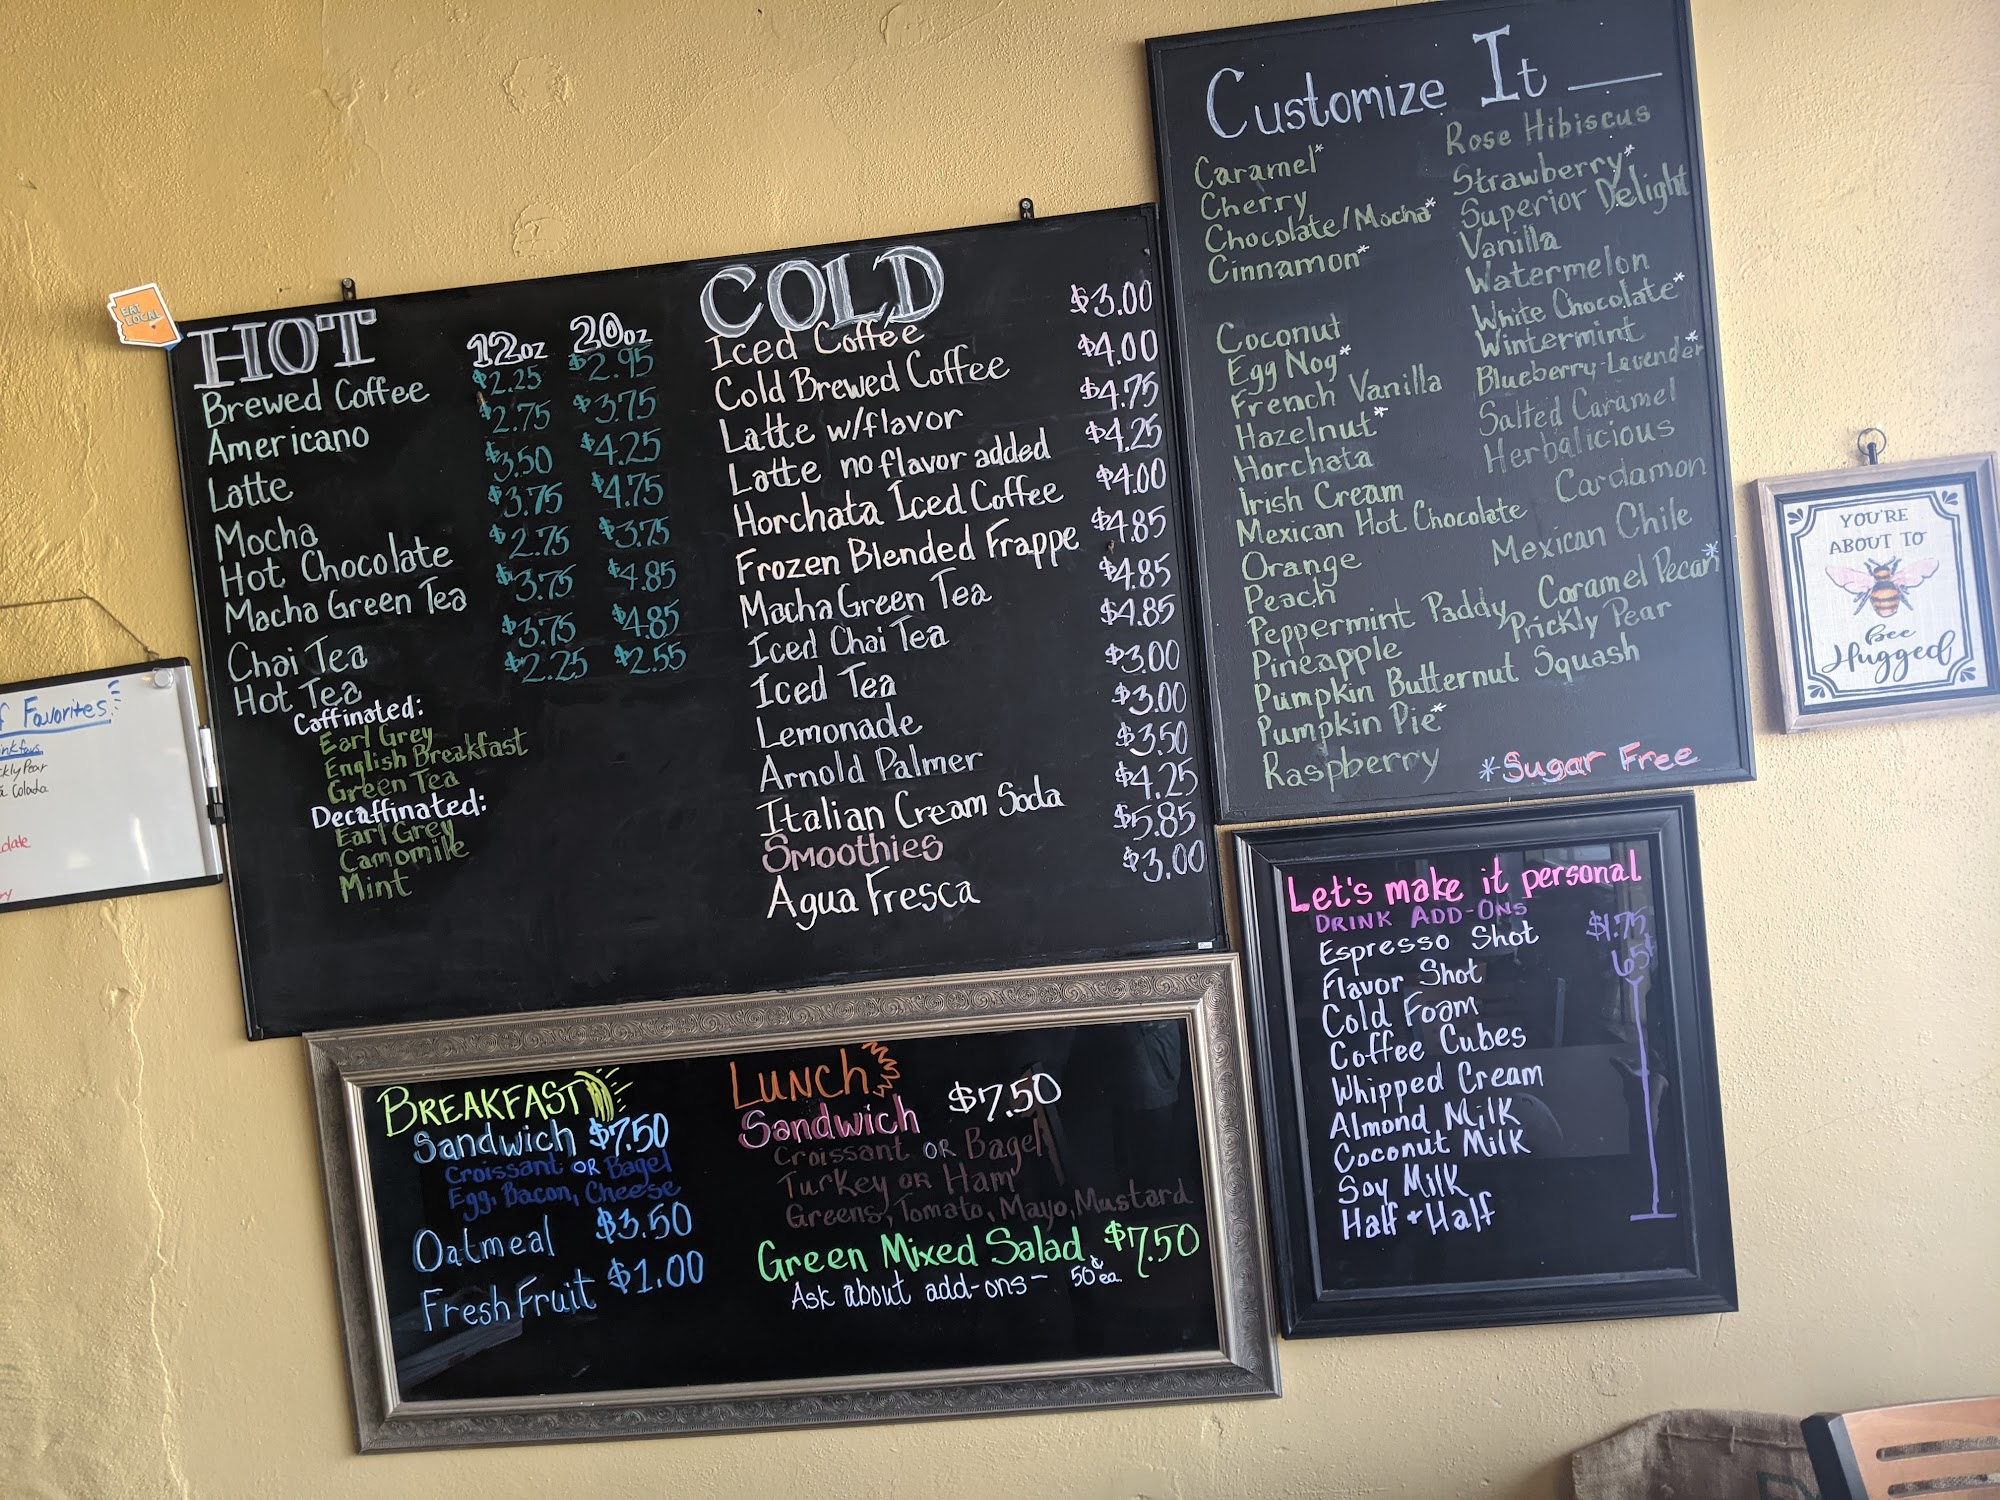 EAT
LOCAL
HOT 12oz 20oz
Brewed Coffee $2.25 $2.95
Americano $2.75 $3.75
Latte $3.50 $4.25
Mocha $3.75 $4.75
Hot Chocolate $2.75 $3.75
Macha Green Tea $3.75 $4.85
Chai Tea $3.75 $4.85
Hot Tea $2.25 $2.55
Caffinated:
Earl Grey
English Breakfast
Green Tea
Decaffinated:
Earl Grey
Camomile
Mint
COLD
Iced Coffee $3.00
Cold Brewed Coffee $4.00
Latte w/flavor $4.75
Latte no flavor added $4.25
Horchata Iced Coffee $4.00
Frozen Blended Frappe $4.85
Macha Green Tea $4.85
Iced Chai Tea $4.85
Iced Tea $3.00
Lemonade $3.00
Arnold Palmer $3.50
Italian Cream Soda $4.25
Smoothies $5.85
Agua Fresca $3.00
Customize It
Caramel*
Cherry
Chocolate/Mocha*
Cinnamon*
Coconut
Egg Nog*
French Vanilla
Hazelnut*
Horchata
Irish Cream
Mexican Hot Chocolate
Orange
Peach
Peppermint Paddy
Pineapple
Pumpkin Butternut Squash
Pumpkin Pie*
Raspberry
Rose Hibiscus
Strawberry*
Superior Delight
Vanilla
Watermelon
White Chocolate*
Wintermint
Blueberry-Lavender*
Salted Caramel
Herbalicious
Cardamon
Mexican Chile
Caramel Pecan*
Prickly Pear
*Sugar Free
YOU'RE
ABOUT TO
Bee
Hugged
Favorites
Colada
Breakfast
Sandwich $7.50
Croissant or Bagel
Egg, Bacon, Cheese
Oatmeal $3.50
Fresh Fruit $1.00
Lunch
Sandwich $7.50
Croissant or Bagel
Turkey or Ham
Greens, Tomato, Mayo, Mustard
Green Mixed Salad $7.50
Ask about add-ons - 50¢ ea.
Let's make it personal
Drink Add-Ons
Espresso Shot $1.75
Flavor Shot 65¢
Cold Foam
Coffee Cubes
Whipped Cream
Almond Milk
Coconut Milk
Soy Milk
Half + Half